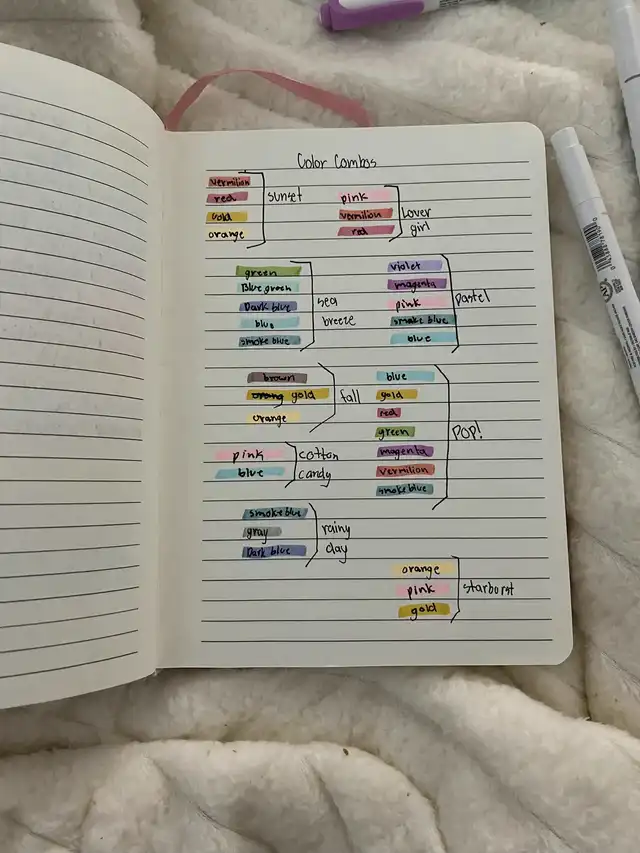 Color Combos
vermilion
red
gold
orange
sunset
pink
vermilion
red
Lover
girl
green
Blue green
Dark blue
blue
smoke blue
sea
breeze
violet
magenta
pink
smoke blue
blue
Pastel
brown
orang gold
orange
fall
blue
gold
red
green
magenta
vermilion
smoke blue
POP!
pink
blue
cotton
candy
smoke blue
gray
Dark blue
rainy
day
orange
pink
gold
starborst